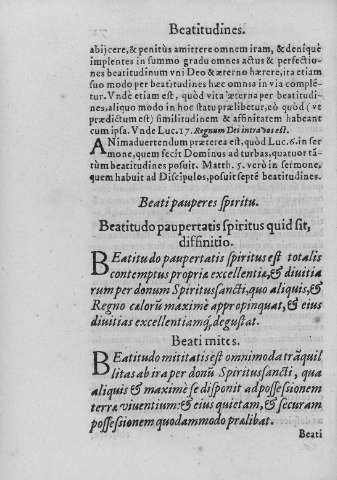 Beatitudines.
abijcere, & penitùs amittere omnem iram, & deniq́ue
implentes in summo gradu omnes actus & perfectio-
nes beatitudinum vni Deo & æterno hærere, ita etiam
suo modo per beatitudines hæc omnia in via complē-
tur. Vnde etiam est, quòd vita æterna per beatitudi-
nes, aliquo modo in hoc statu prælibetur, eò quòd (ve
prædictum est) similitudinem & affinitatem habeant
cum ipsa. Vnde Luc. 17. Regnum Dei intra vos est.
ANimaduertendum præterea est, quòd Luc. 6. in ser
mone, quem fecit Dominus ad turbas, quatuor tā-
tùm beatitudines posuit. Matth. 5. verò in sermone,
quem habuit ad Discipulos, posuit septē beatitudines.
Beati pauperes spiritu.
Beatitudo paupertatis spiritus quid sit,
diffinitio.
BEatitudo paupertatis spiritus est totalis
contemptus propriæ excellentiæ, & diuitia
rum per donum Spiritus sancti, quo aliquis, &
Regno cælorū maximè appropinquat, & eius
diuitias excellentiamq́, degustat.
Beati mites.
BEatitudo mititatis est omnimoda trāquil
litas ab ira per donū Spiritus sancti, qua
aliquis & maximè se disponit ad possessionem
terræ viuentium: & eius quietam, & securam
possessionem quodammodo prælibat.
Beati